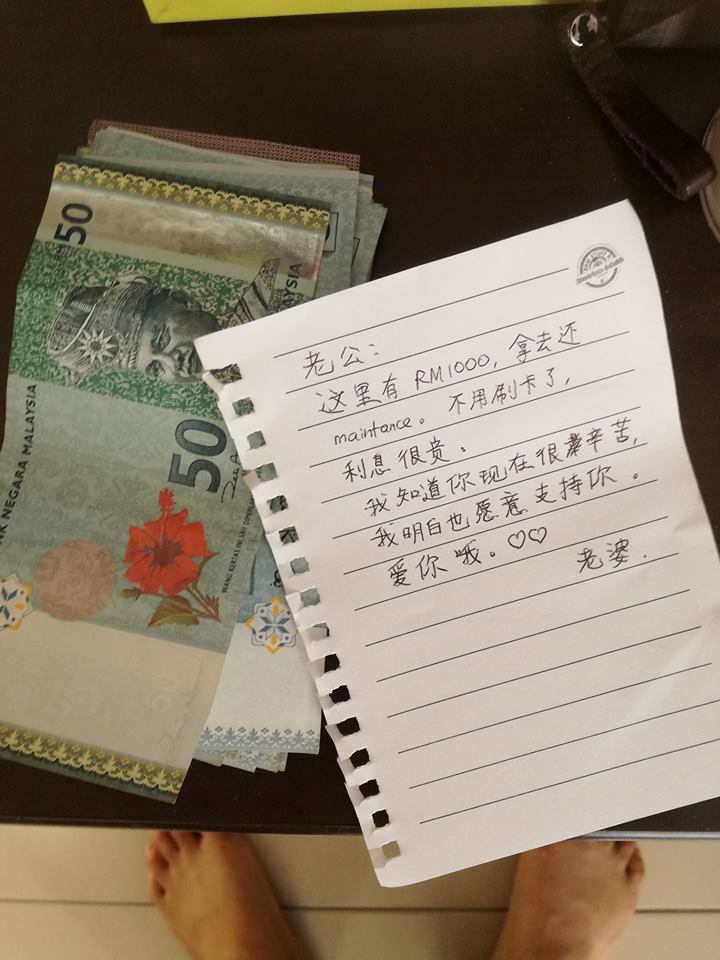 50
50
NK NEGARA MALAYSIA
WANG KERTAS INI SAH DIPERLAKU
AYSIA
老公：
这里有 RM1000，拿去还
maintance。 不用刷卡了，
利息很贵。
我知道你现在很辛苦，
我明白也愿意支持你。
爱你哦。♡♡
老婆.